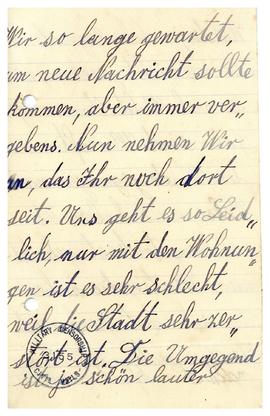 Wir so lange gewartet,
um neue Nachricht sollte
kommen, aber immer ver„
gebens. Nun nehmen Wir
an, das Ihr noch dort
seit. Uns geht es so Leid„
lich, nur mit den Wohnun„
gen ist es sehr schlecht,
weil die Stadt sehr zer„
stört ist. Die Umgegend
ist ja schön lauter
MILITARY CENSORSHIP